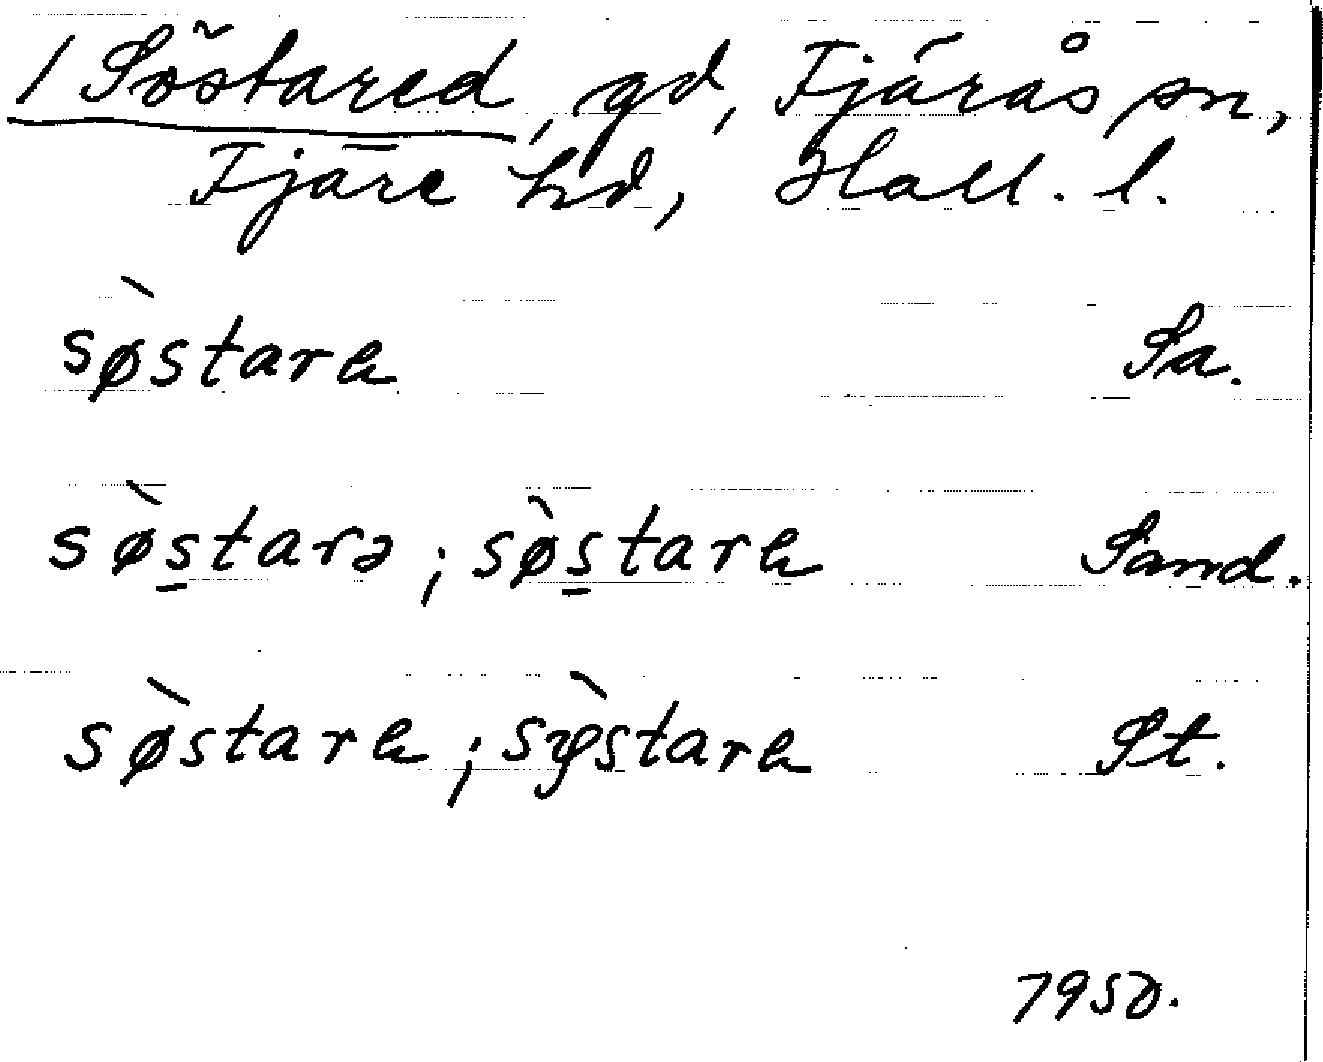 1 Söstared, gd, Fjärås sn,
Fjäre hd, Hall. l.
sø̀stare Sa.
sø̀s̠tarə ; sø̀s̠tare Sand.
sø̀stare ; sỳstare St.
1950.